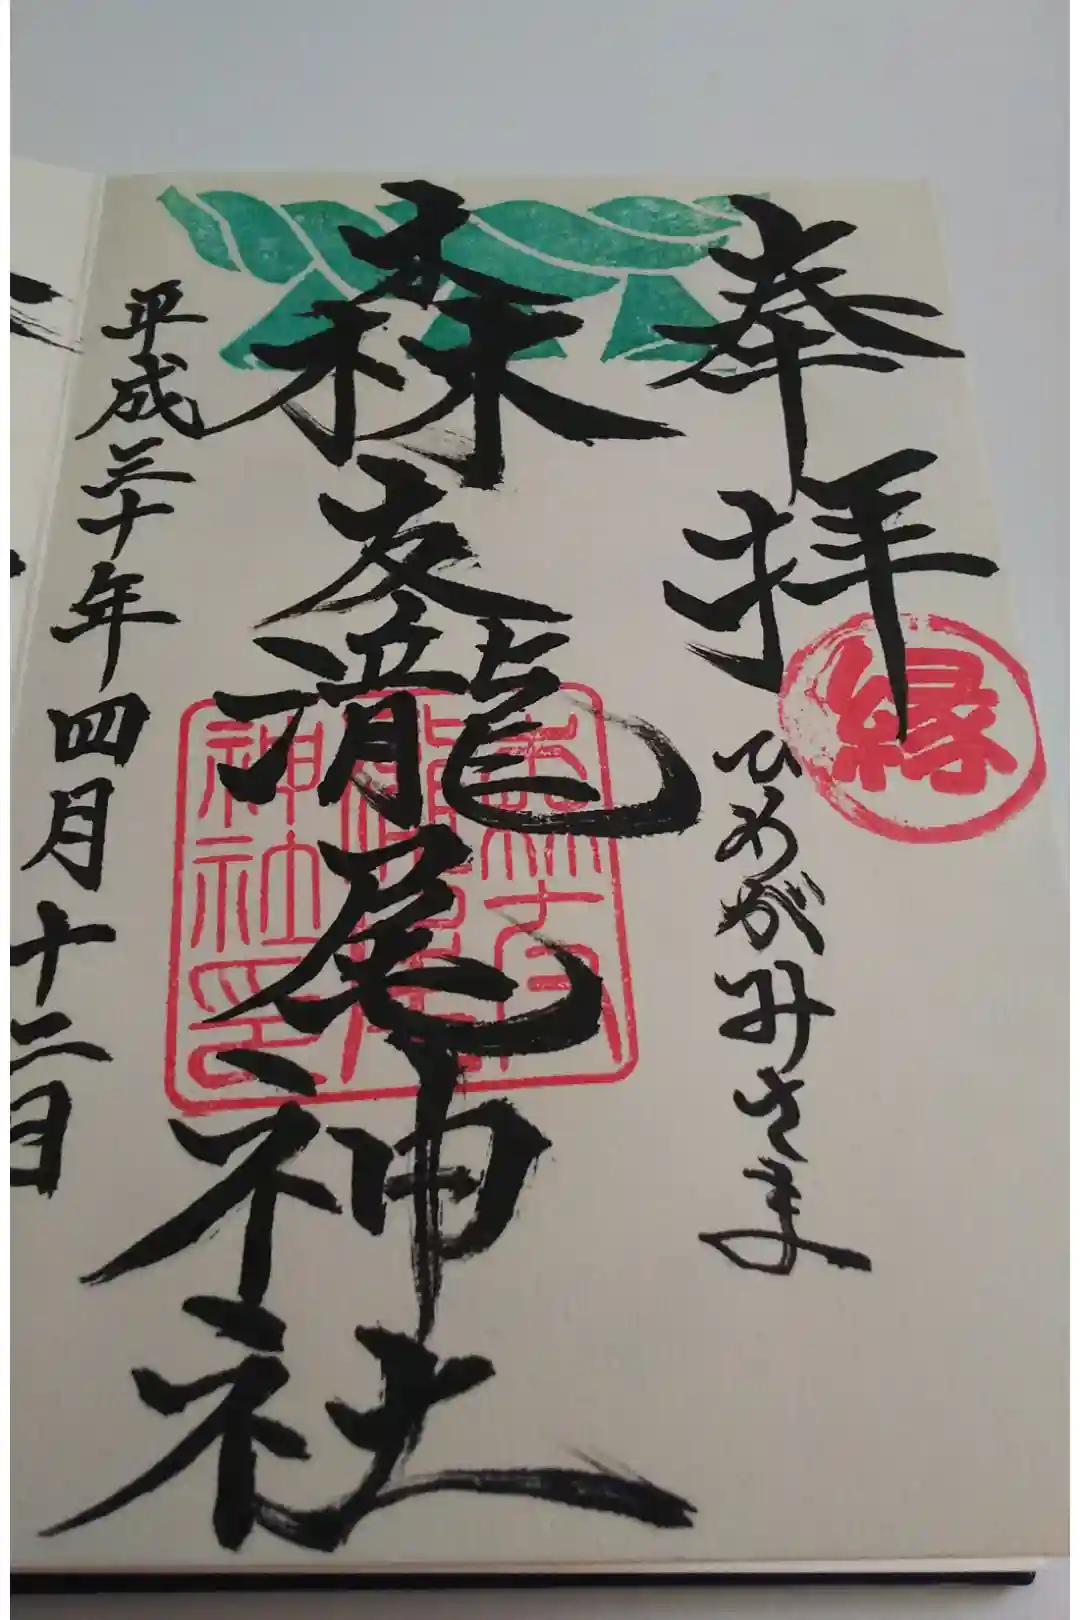 奉拝
縁
ひめがみさま
森友瀧尾神社
森友
瀧尾
神社印
平成三十年四月十二日